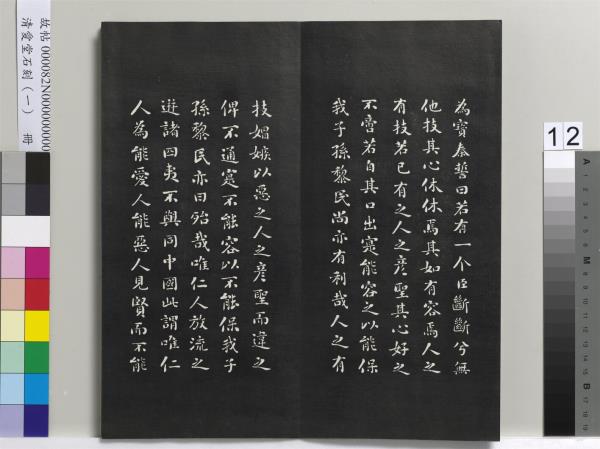 為寶秦誓曰若有一个臣斷斷兮無
他技其心休休焉其如有容焉人之
有技若己有之人之彦聖其心好之
不啻若自其口出寔能容之以能保
我子孫黎民尚亦有利哉人之有
技媢嫉以惡之人之彦聖而違之
俾不通寔不能容以不能保我子
孫黎民亦曰殆哉唯仁人放流之
迸諸四夷不與同中國此謂唯仁
人為能愛人能惡人見賢而不能
故帖 000082N000000000
清愛堂石刻(一) 冊
12